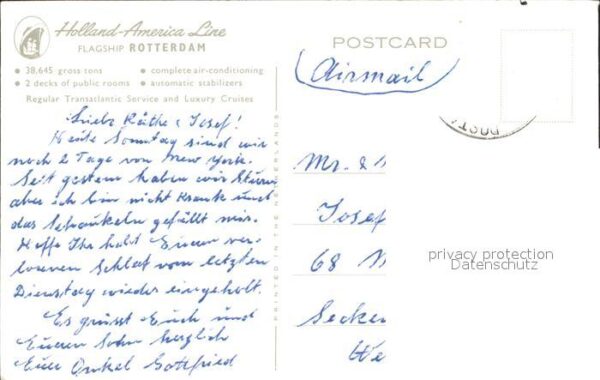 Holland-America Line
FLAGSHIP ROTTERDAM
• 38,645 gross tons • complete air-conditioning
• 2 decks of public rooms • automatic stabilizers
Regular Transatlantic Service and Luxury Cruises
POSTCARD
Airmail
POST
Liebe Käthe & Josef!
Heute Sonntag sind wir
noch 2 Tage von New York.
Seit gestern haben wir Sturm
aber ich bin nicht krank und
das Schaukeln gefällt mir.
Hoffe Ihr habt Eueren ver-
lorenen Schlaf vom letzten
Dienstag wieder eingeholt.
Es grüsst Euch und
Eueren Sohn herzlich
Euer Onkel Gottfried
PRINTED IN THE NETHERLANDS
Mr. &
Josef
68
Secker
We
privacy protection
Datenschutz